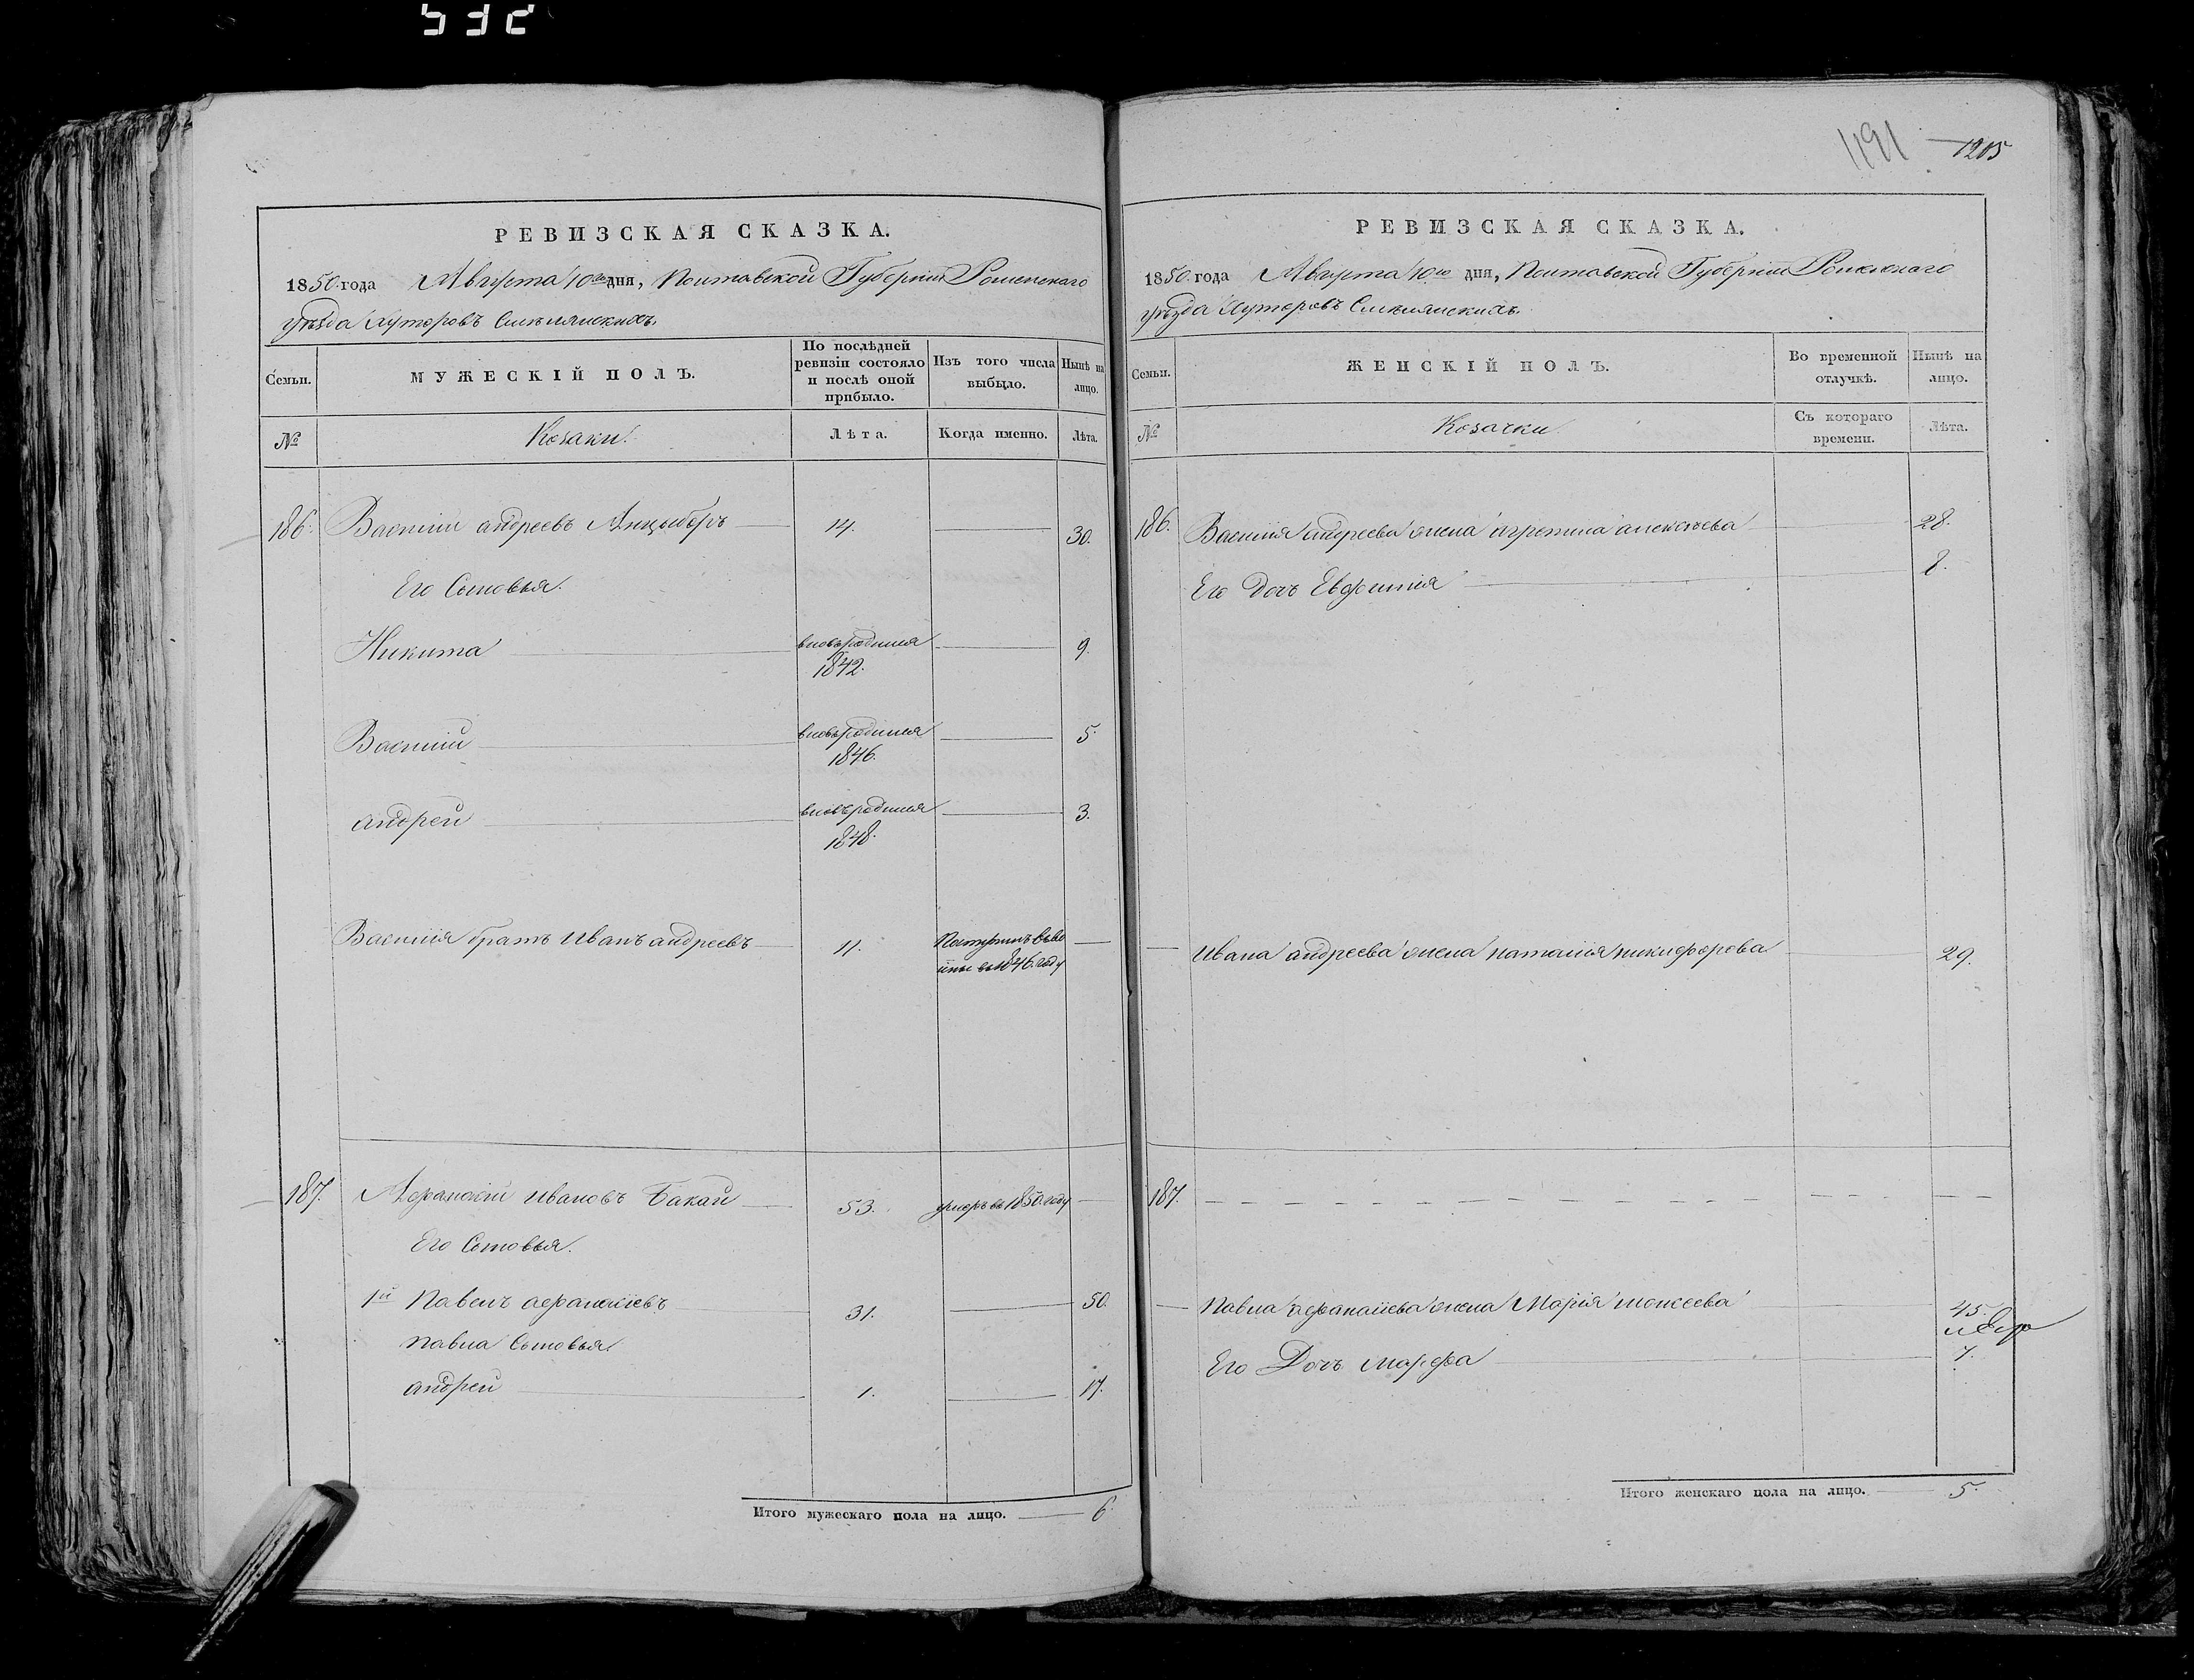 532
РЕВИЗСКАЯ СКАЗКА.
1850 года Августа 10го дня, Полтавской Губерніи Роменскаго
уѣзда Хуторовъ Смѣлянскихъ.
Семьи.
МУЖЕСКІЙ ПОЛЪ.
По послѣдней ревизіи состояло и послѣ оной прибыло.
Изъ того числа выбыло.
Нынѣ на лицо.
№
Козаки.
Лѣта.
Когда именно.
Лѣта.
186. Василій андреевъ Анцыборъ 14. 30.
Его Сыновья.
Никита вновьродился 9.
1842.
Василій вновьродился 5.
1846.
андрей вновьродился 3.
1848.
Василія братъ Иванъ андреевъ 11.
въ 1846. году
187. Афанасій ивановъ Бакай 53. умеръ въ 1850. году
Его Сыновья.
1й Павелъ афанасіевъ 31. 50.
Павла Сыновья
андрей 1. 17.
Итого мужескаго пола на лицо. 6.
1191 1205
РЕВИЗСКАЯ СКАЗКА.
1850. года Августа 10го дня, Полтавской Губерніи Роменскаго
уѣзда Хуторовъ Смѣлянскихъ.
Семьи.
ЖЕНСКІЙ ПОЛЪ.
Во временной отлучкѣ.
Нынѣ на лицо.
№
Козачки
Съ котораго времени.
Лѣта.
186. Василія андреева жена агрепина алексѣева 28.
Его Дочь Евфимія 8.
Ивана андреева жена наталія никифорова 29.
187.
Павла афанасіева жена Марія моисеева 45.
Его Дочь марфа 7.
Итого женскаго пола на лицо. 5.